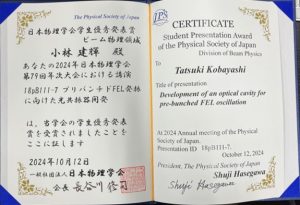 The Physical Society of Japan
日本物理学会学生優秀発表賞
ビーム物理領域
小林 建輝 殿
あなたの2024年日本物理学会
第79回年次大会における講演
18pB111-7 プリバンチドFEL発振
に向けた光共振器開発
は、当学会の学生優秀発表
賞を受賞されましたことを
ここに証します
2024年10月12日
一般社団法人 日本物理学会
会長 長谷川 修司
The Physical Society of Japan
JPS
CERTIFICATE
Student Presentation Award
of the Physical Society of Japan
Division of Beam Physics
To
Tatsuki Kobayashi
Title of presentation
Development of an optical cavity for
pre-bunched FEL oscillation
At 2024 Annual meeting of the Physical
Society of Japan.
Presentation ID 18pB111-7.
October 12, 2024
President, The Physical Society of Japan
Shuji Hasegawa
Shuji Hasegawa